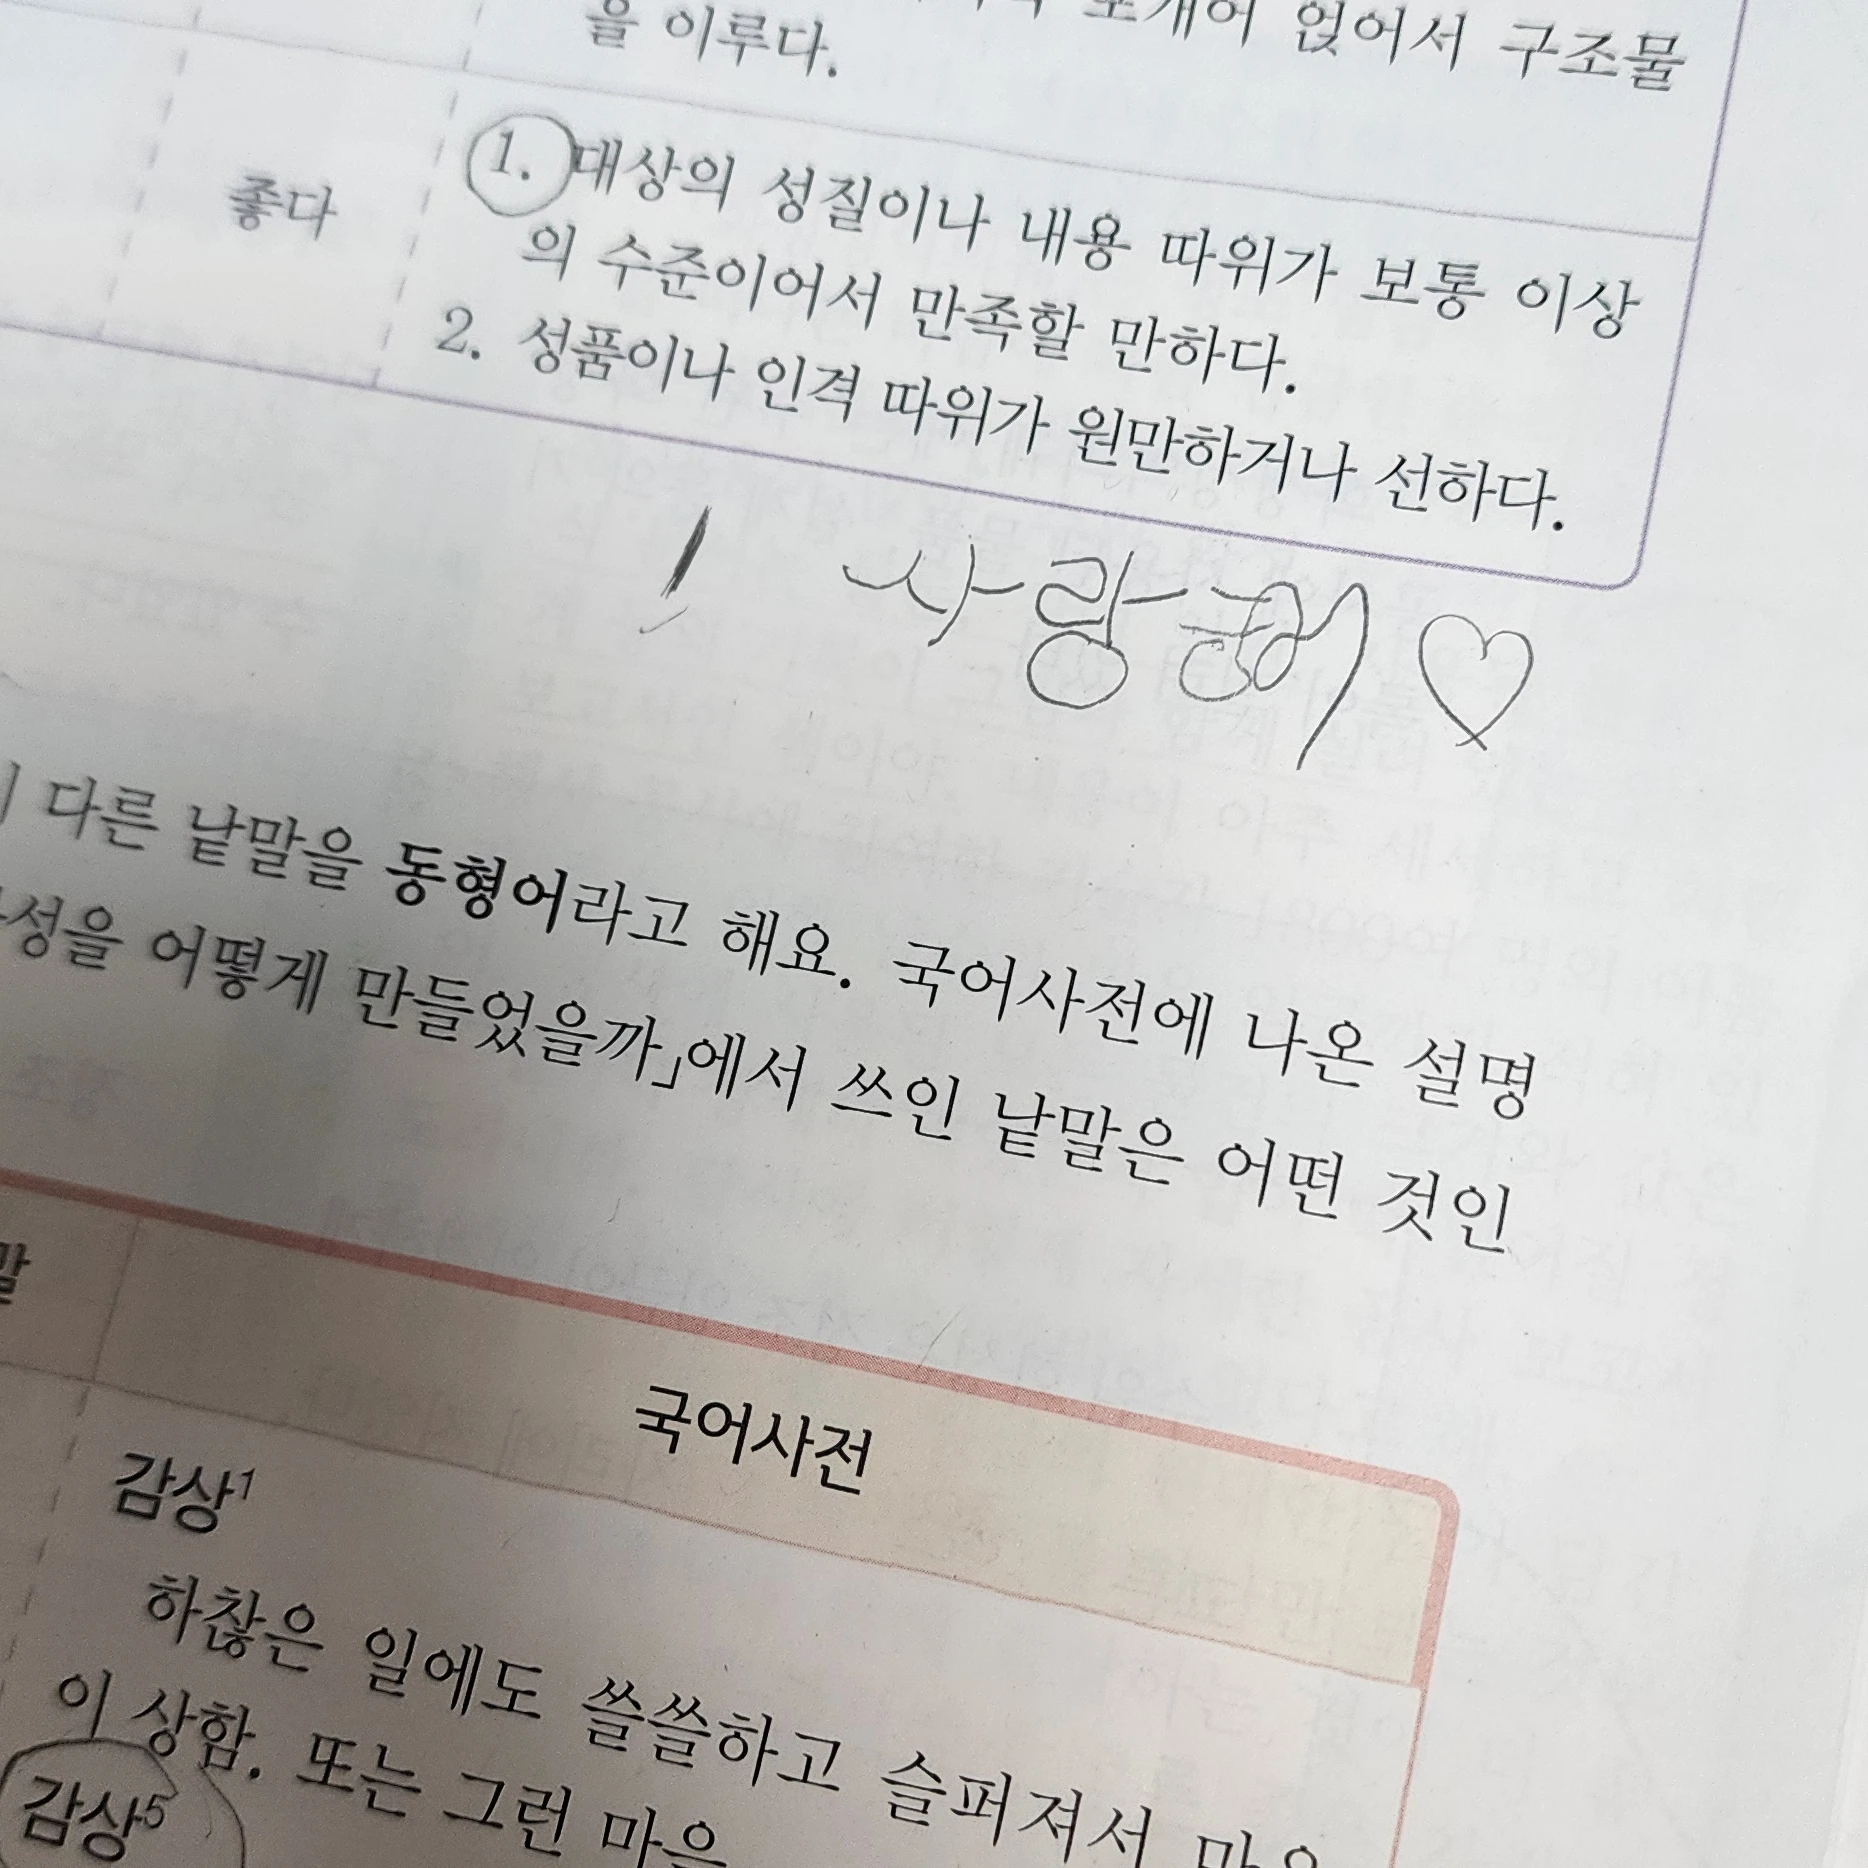 얹어서 구조물
을 이루다.
좋다
1. 대상의 성질이나 내용 따위가 보통 이상
의 수준이어서 만족할 만하다.
2. 성품이나 인격 따위가 원만하거나 선하다.
사랑해♡
다른 낱말을 동형어라고 해요. 국어사전에 나온 설명
성을 어떻게 만들었을까」에서 쓰인 낱말은 어떤 것인
말
국어사전
감상1
하찮은 일에도 쓸쓸하고 슬퍼져서
이 상함. 또는 그런 마음
감상5